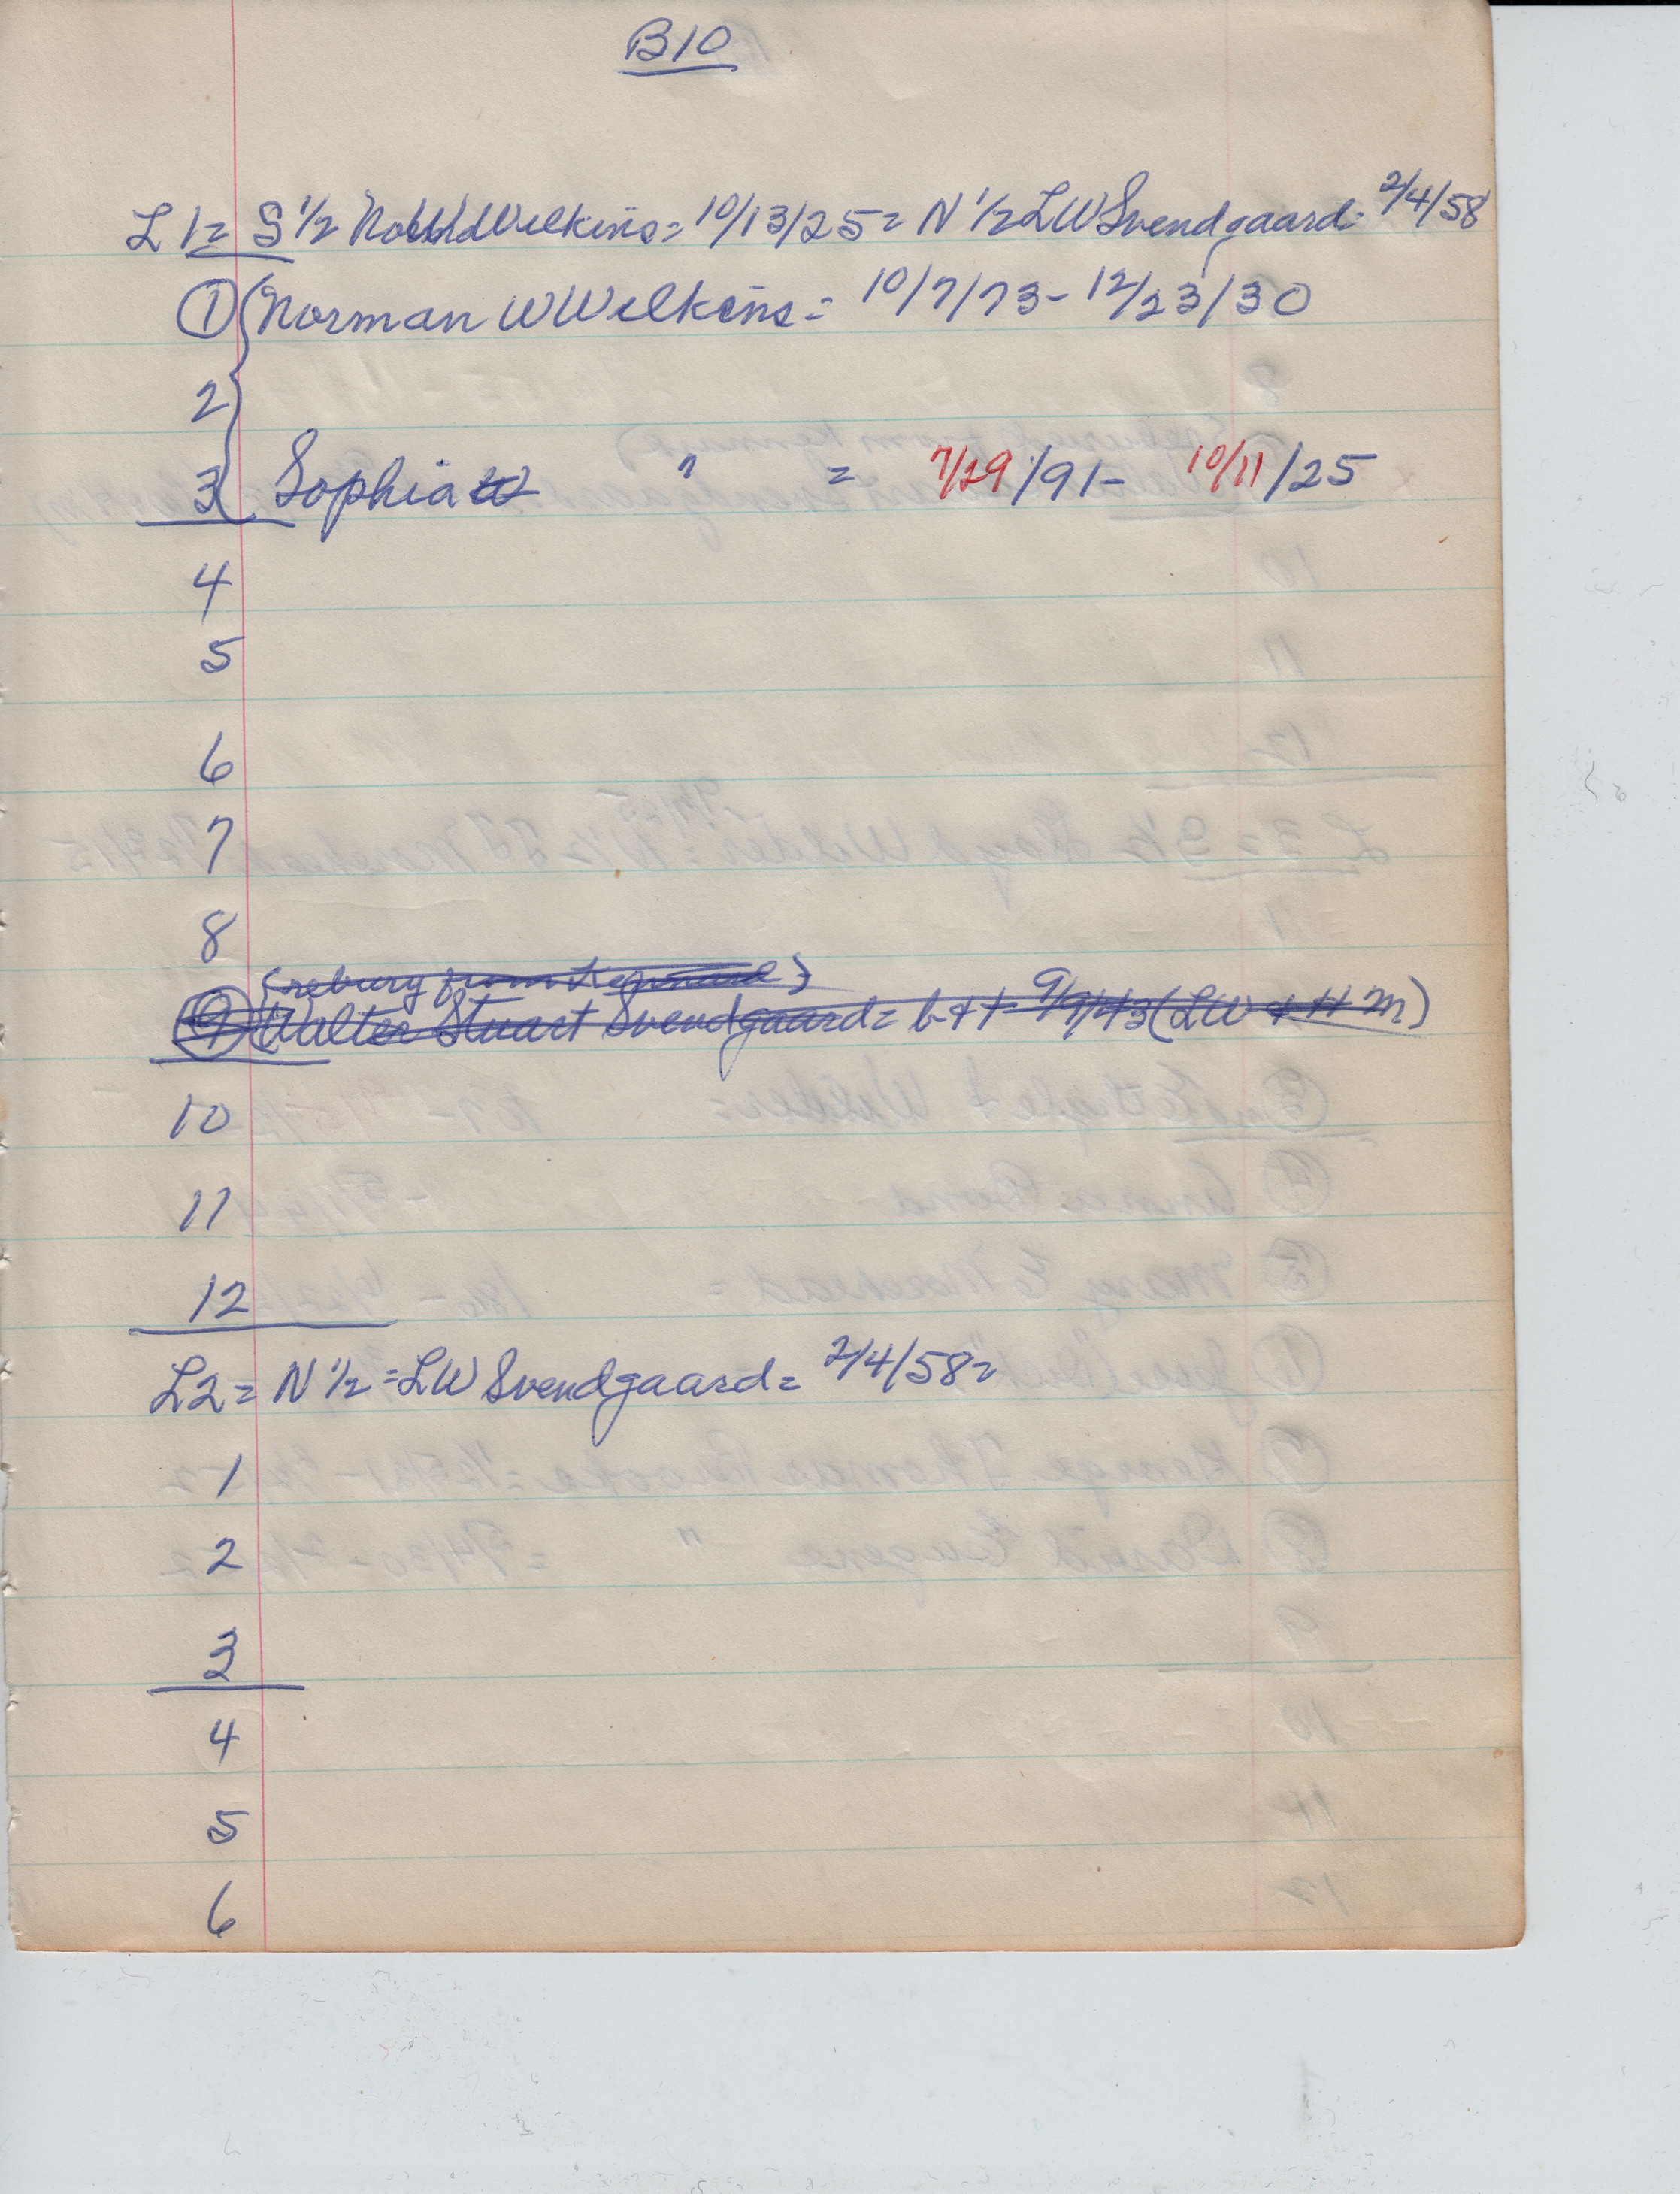 B10
L 1 = S 1/2 Wilkins = 10/13/25 = N 1/2 LW Svendgaard = 2/4/58
① Norman W Wilkins = 10/7/73 - 12/23/30
2
3 Sophia W " = 7/29/91 - 10/11/25
4
5
6
7
8
(rebury from Kennard)
⑨ Walter Stuart Svendgaard = b + t 9/9/43 (LW + H M)
10
11
12
L2 = N 1/2 = LW Svendgaard = 2/4/58 =
1
2
3
4
5
6